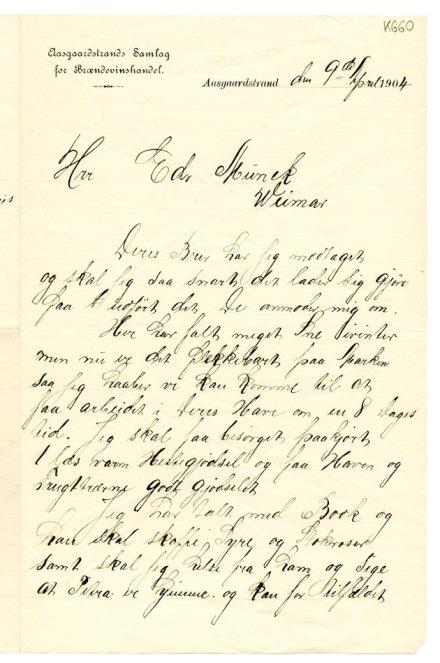 K660
Aasgaardstrands Samlag
for Brændevinshandel.
Aasgaardstrand den 9de April 1904
Hrr Edv Munck
Weimar
Deres Brev har jeg modtaget
og skal jeg saa snart det lader sig gjøre
faa udført det De anmoder mig om.
Her har falt meget Sne ivinter
men nu er det bart paa Marken
saa jeg haaber vi kan komme til at
faa arbeidet i Deres Have om en 8 Dages
tid. Jeg skal faa besørget paakjørt
1 læs varm Hestegjødsel og faa Haven og
Frugttrærne godt gjødselet
Jeg har talt med Book og
han skal skaffe Syre og Stokroser
samt skal jeg hilse fra ham og sige
at Petra er hjemme. og kan for tilfældet